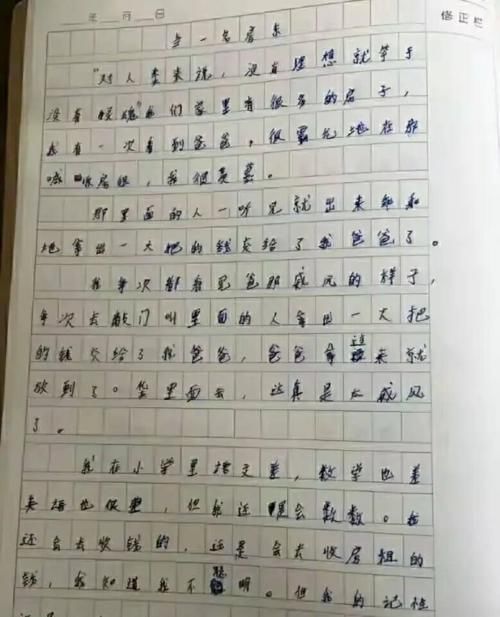 年 月 日
修正栏
当一名房东
"对人类来说，没有理想就等于
没有灵魂"我们家里有很多的房子，
我有一次看到爸爸，很霸气地在那
喊 收房租，我很羡慕。
那里面的人一听见就出来
地拿出一大把的钱交给了我爸爸了。
我每次都看见爸那威风的样子，
每次去敲门叫里面的人拿出一大把
的钱交给了我爸爸，爸爸拿过来就
放到了。包里面去，这真是太威风
了。
我在小学里语文差，数学也差
英语也很差，但我还是会数数。我
还会去收钱的，还是会去收房租的
钱，我知道我不聪明。但我的记性